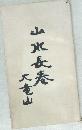 山水長卷
大竜山